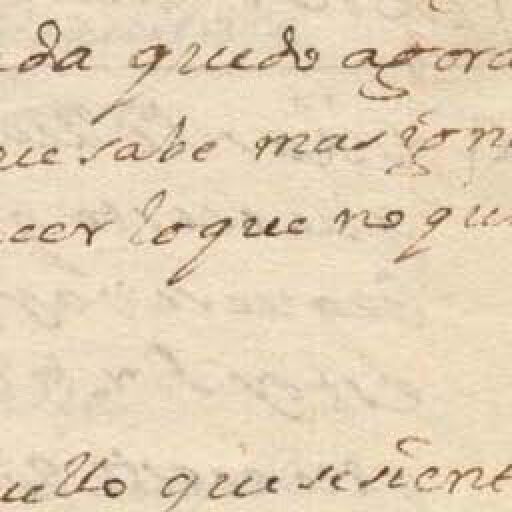 da quedo agora
ue sabe mas ign
cer lo que no qui
uello que se sient